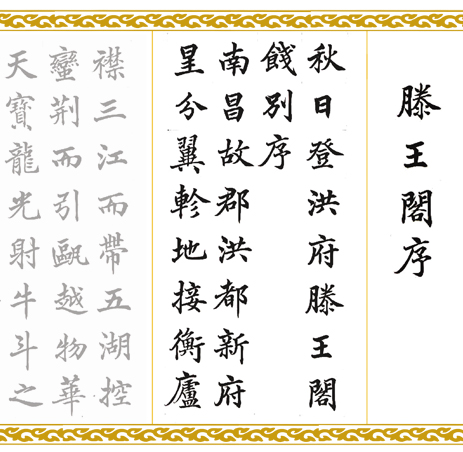 滕王閣序
秋日登洪府滕王閣
餞別序
南昌故郡洪都新府
星分翼軫地接衡廬
襟三江而帶五湖控
蠻荊而引甌越物華
天寶龍光射牛斗之